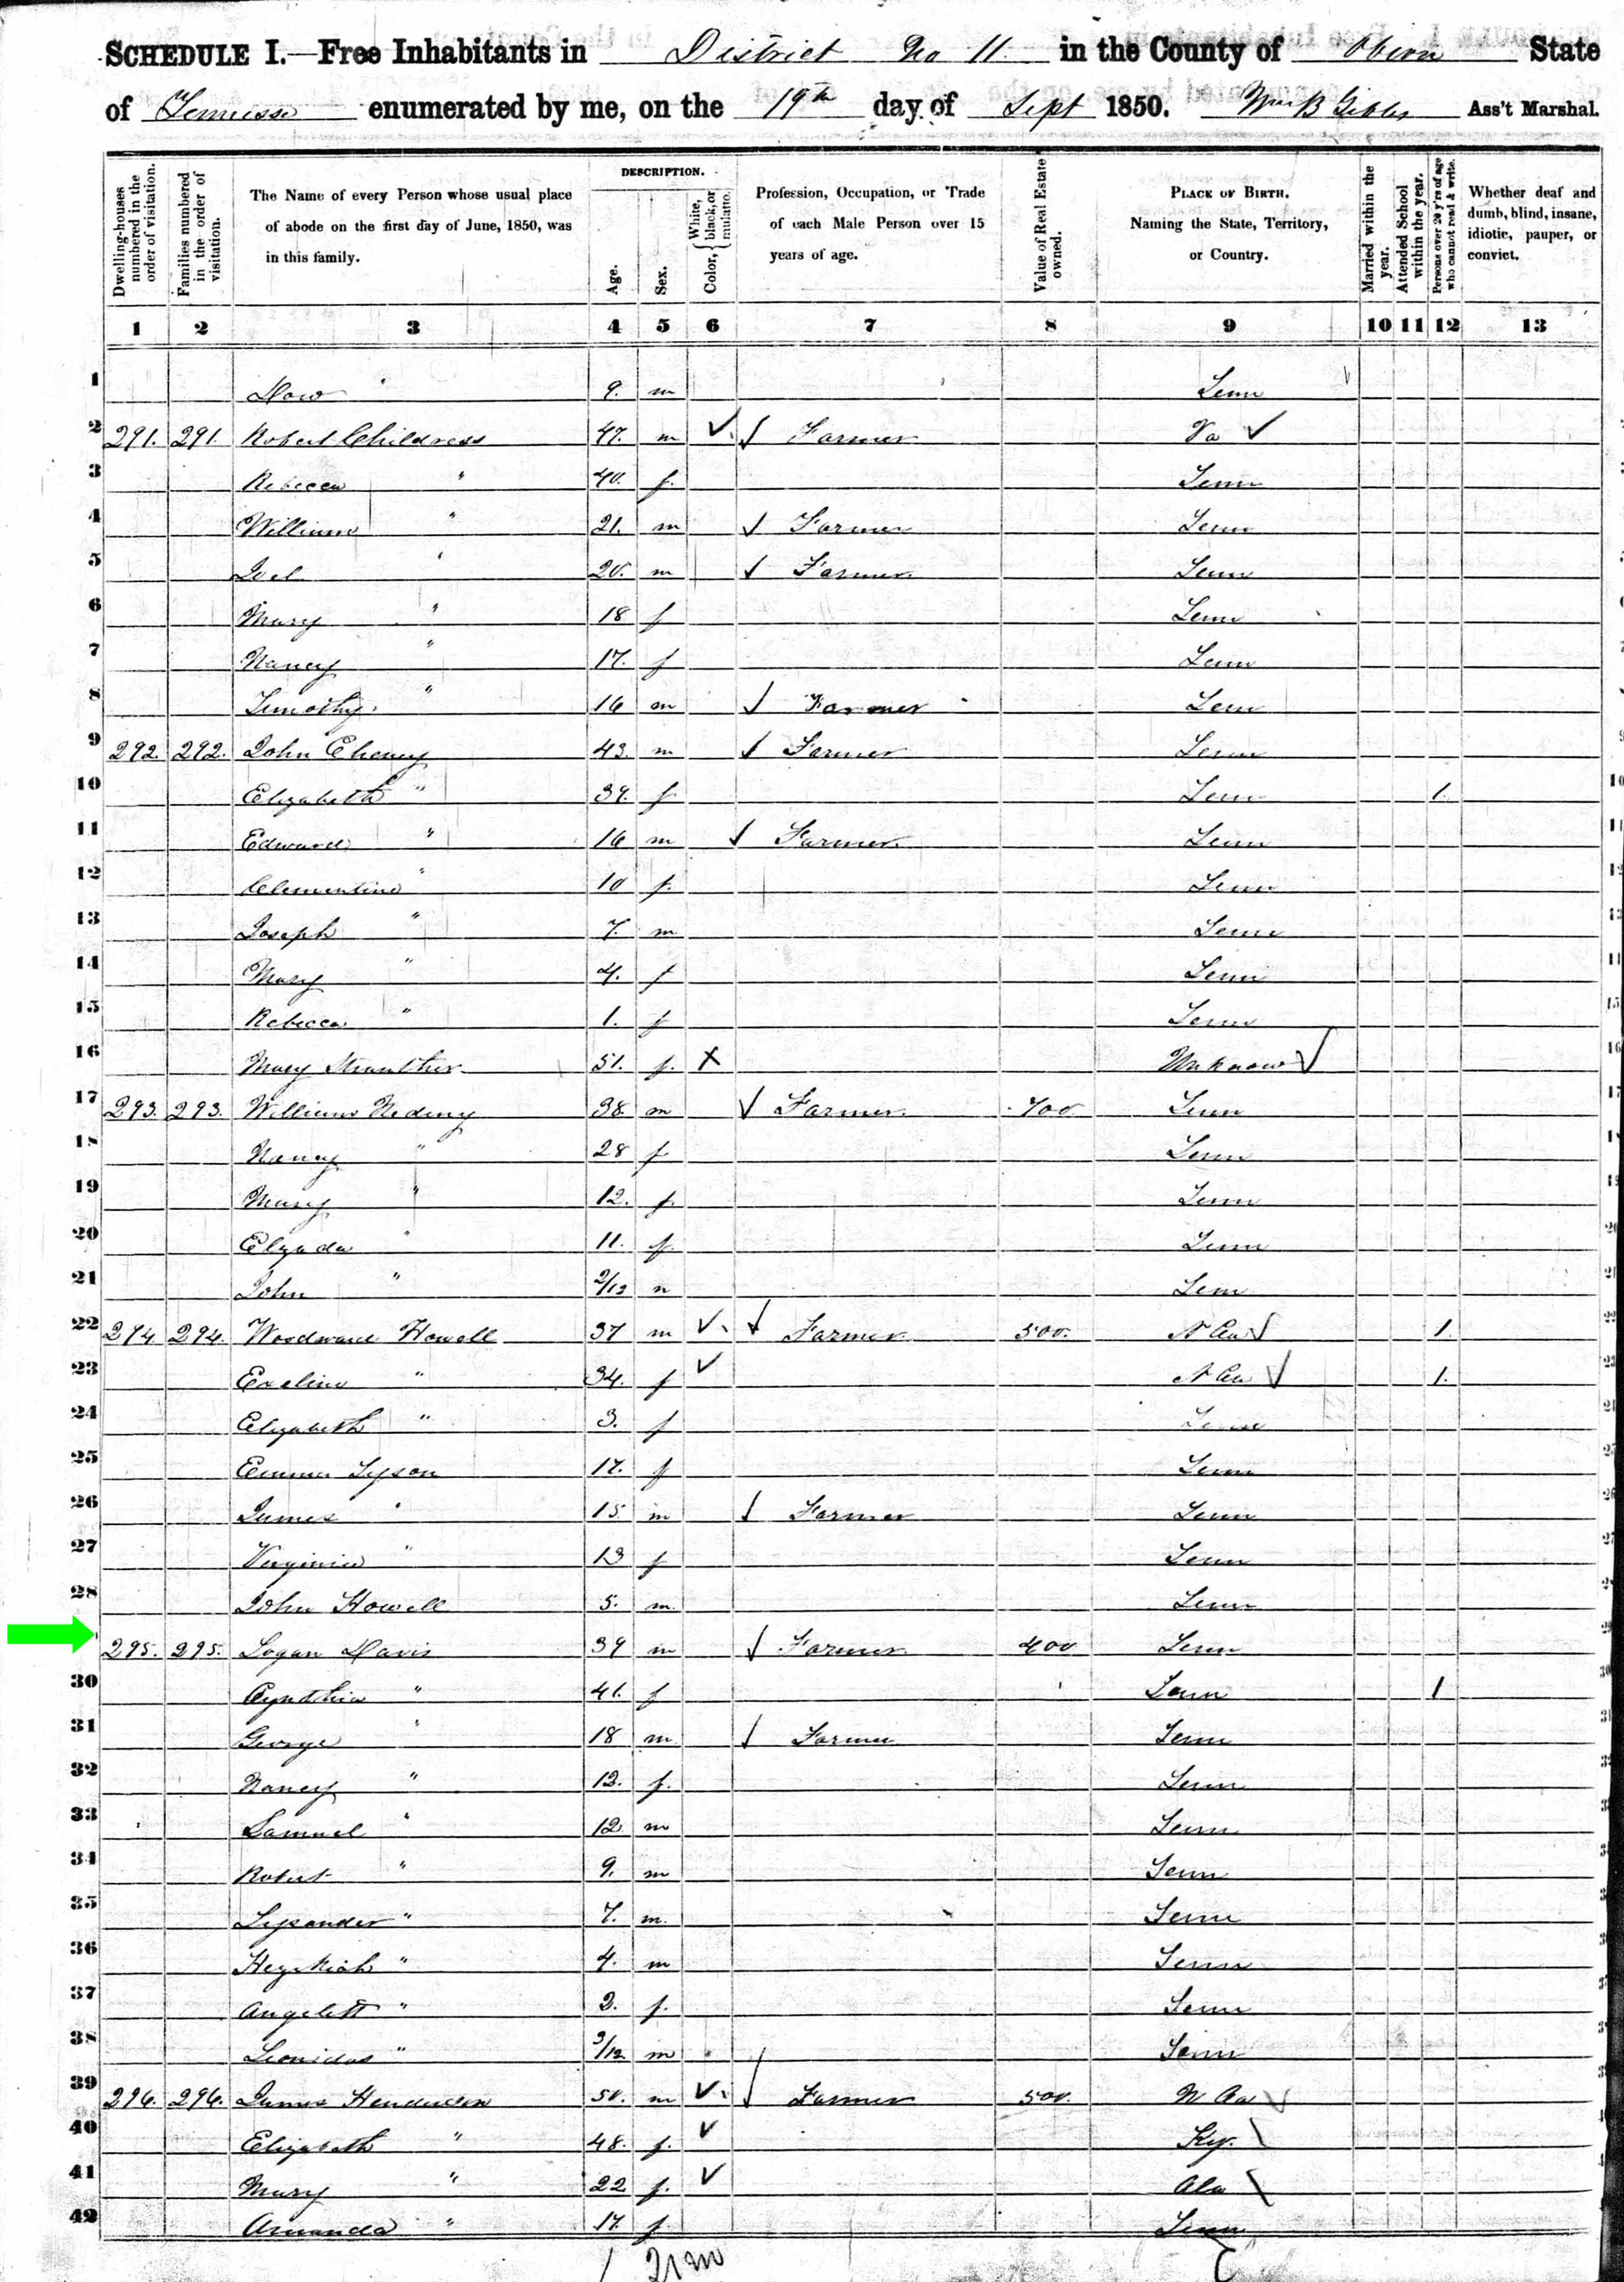 SCHEDULE I.—Free Inhabitants in District No 11. in the County of Obion State
of Tennessee enumerated by me, on the 19th day of Sept 1850. Wm B Gibbs Ass't Marshal.
Dwelling-houses numbered in the order of visitation.
Families numbered in the order of visitation.
The Name of every Person whose usual place of abode on the first day of June, 1850, was in this family.
DESCRIPTION.
Age.
Sex.
Color, { White, black, or mulatto.
Profession, Occupation, or Trade of each Male Person over 15 years of age.
Value of Real Estate owned.
PLACE OF BIRTH. Naming the State, Territory, or Country.
Married within the year.
Attended School within the year.
Persons over 20 y'rs of age who cannot read & write.
Whether deaf and dumb, blind, insane, idiotic, pauper, or convict.
1 2 3 4 5 6 7 8 9 10 11 12 13
1 " 9. m Tenn
2 291. 291. Robert Childress 47. m Farmer Va
3 Rebecca " 40. f. Tenn
4 William " 21. m Farmer Tenn
5 Joel " 20. m Farmer Tenn
6 Mary " 18 f Tenn
7 Nancy " 17. f Tenn
8 Timothy " 16 m Farmer Tenn
9 292. 292. John 43. m Farmer Tenn
10 Elizabeth " 39. f Tenn 1.
11 Edward " 16 m Farmer Tenn
12 Clementine " 10 f. Tenn
13 Joseph " 7. m Tenn
14 Mary " 4. f Tenn
15 Rebecca " 1. f Tenn
16 Mary 51. f. X Unknown
17 293. 293. William 38. m Farmer 700 Tenn
18 Nancy " 28 f Tenn
19 Mary " 12. f. Tenn
20 " 11. f. Tenn
21 John " 2/12 m Tenn
22 294. 294. Woodward Howell 37 m Farmer 500. N Ca 1.
23 Eveline " 34. f N Ca 1.
24 Elizabeth " 3. f Tenn
25 Emma Tyson 17. f Tenn
26 James " 15 m Farmer Tenn
27 Virginia " 13 f Tenn
28 John Howell 5. m. Tenn
295. 295. Logan Davis 39 m Farmer 400 Tenn
30 Cynthia " 41. f Tenn 1
31 George " 18 m Farmer Tenn
32 Nancy " 12. f. Tenn
33 Samuel " 12 m Tenn
34 Robert " 9. m Tenn
35 Lysander " 7. m. Tenn
36 Hezekiah " 4. m Tenn
37 Angelett " 2. f. Tenn
38 Leonidas " 3/12 m Tenn
39 296. 296. James Henderson 50. m Farmer 500. N Ca
40 Elizabeth " 48. f. Ky.
41 Mary " 22 f. Ala
42 Amanda " 17. f Tenn
21 m